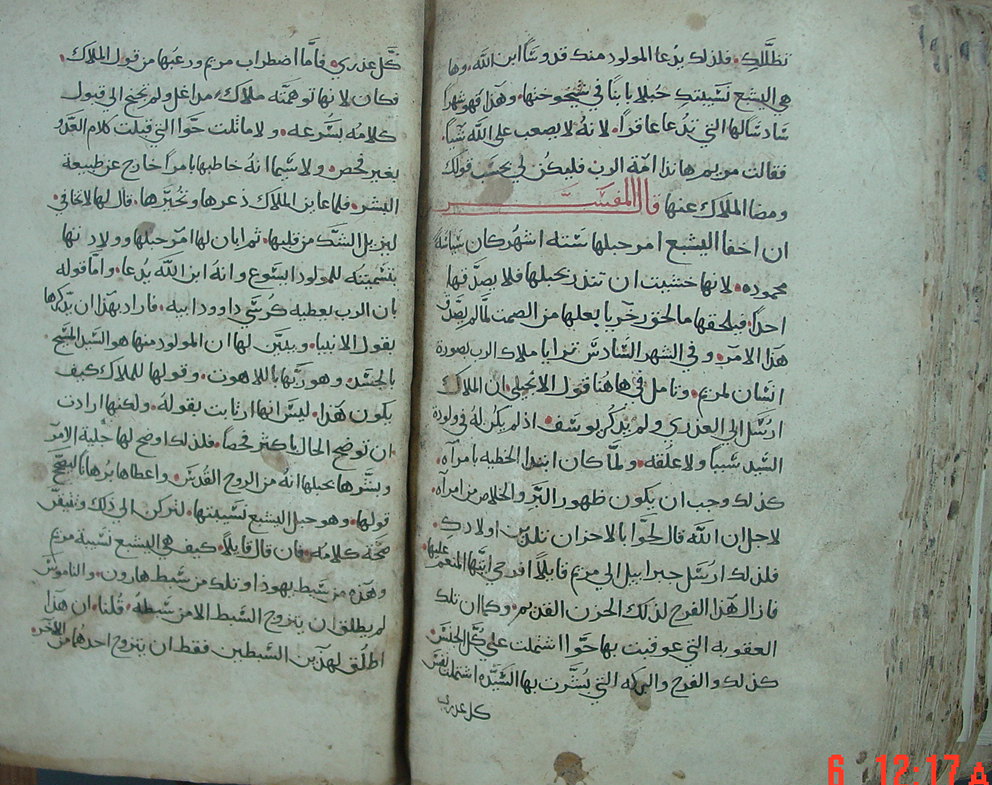 تظللك. فلذلك يدعا المولود منك قدوسًا ابن الله. وها
هي اليشبع نسيبتك حبلا بابنًا في شيخوختها. وهذا فهو شهرًا
سادسًا لها التي تدعا عاقرًا. لانه لا يصعب على الله شيًا
فقالت مريم هانذا امة الرب فليكن لي بحسب قولك
ومضا الملاك عنها قال المفسر
ان اخفا اليشبع امر حبلها ستة اشهر كان
محموده. لانها خشيت ان تنذر بحبلها فلا يصدقها
احدًا. فيلحقها ما لحق زخريا بعلها من الصمت لما لم يصدق
هذا الامر. وفي الشهر السادس ترايا ملاك الرب بصورة
انسان لمريم. وتامل في هاهنا قول الانجيلي ان الملاك
ارسل الى العذري ولم يذكر يوسف. اذ لم يكن له في ولادة
السيد سببًا ولا علقه. ولما كان ابتدا الخطيه بامرآه.
كذلك وجب ان يكون ظهور البر والخلاص من امرآه.
لاجل ان الله قال لحوا بالاحزان تلدين اولادك.
فلذلك ارسل جبراييل الى مريم قايلاً افرحي ايتها المنعم عليها.
فازال هذا الفرح لذلك الحزن القديم. وكما ان تلك
العقوبه التي عوقبت بها حوا اشتملت على كل الجنس.
كذلك والفرح والبركه التي بُشرت بها السيده اشتملت نفس
كل عذري
كل عذري. فاما اضطراب مريم ورعبها من قول الملاك.
فكان لانها توهمته ملاك مداغل ولم تجنح الى قبول
كلامه بسرعه. ولا ماثلت حوا التي قبلت كلام العدو
بغير فحص. ولا سيما انه خاطبها بامرًا خارج عن طبيعة
البشر. فلما عاين الملاك ذعرها وتحيرها. قال لها لا تخافي.
ليزيل الشك من قلبها. ثم ابان لها امر حبلها وولادتها
بتسميته للمولود ايسوع وانه ابن الله يدعا. واما قوله
بان الرب يعطيه كرسي داوود ابيه. فاراد بهذا ان يذكرها
بقول الانبيا. ويبين لها ان المولود منها هو السيد المسيح.
بالجسد. وهو ربها باللاهوت. وقولها للملاك كيف
يكون هذا. ليس انها ارتابت بقوله. ولكنها ارادت
ان توضح الحال باكثر فحصًا. فلذلك اوضح لها جلية الامر
وبشرها بحبلها انه من الروح القدس. واعطاها برهانًا
قولها. وهو حبل اليشبع نسيبتها. لتركن الى ذلك وتتيقن
صحة كلامه. فان قال قايلاً. كيف هي اليشبع نسيبة مريم
وهذه من سبط يهوذا وتلك من سبط هارون. والناموس
لم يطلق ان يتزوج السبط الا من سبطه. قلنا. ان هذا
اطلق لهذين السبطين فقط ان يتزوج احدهما من الاخر.
6 12:17